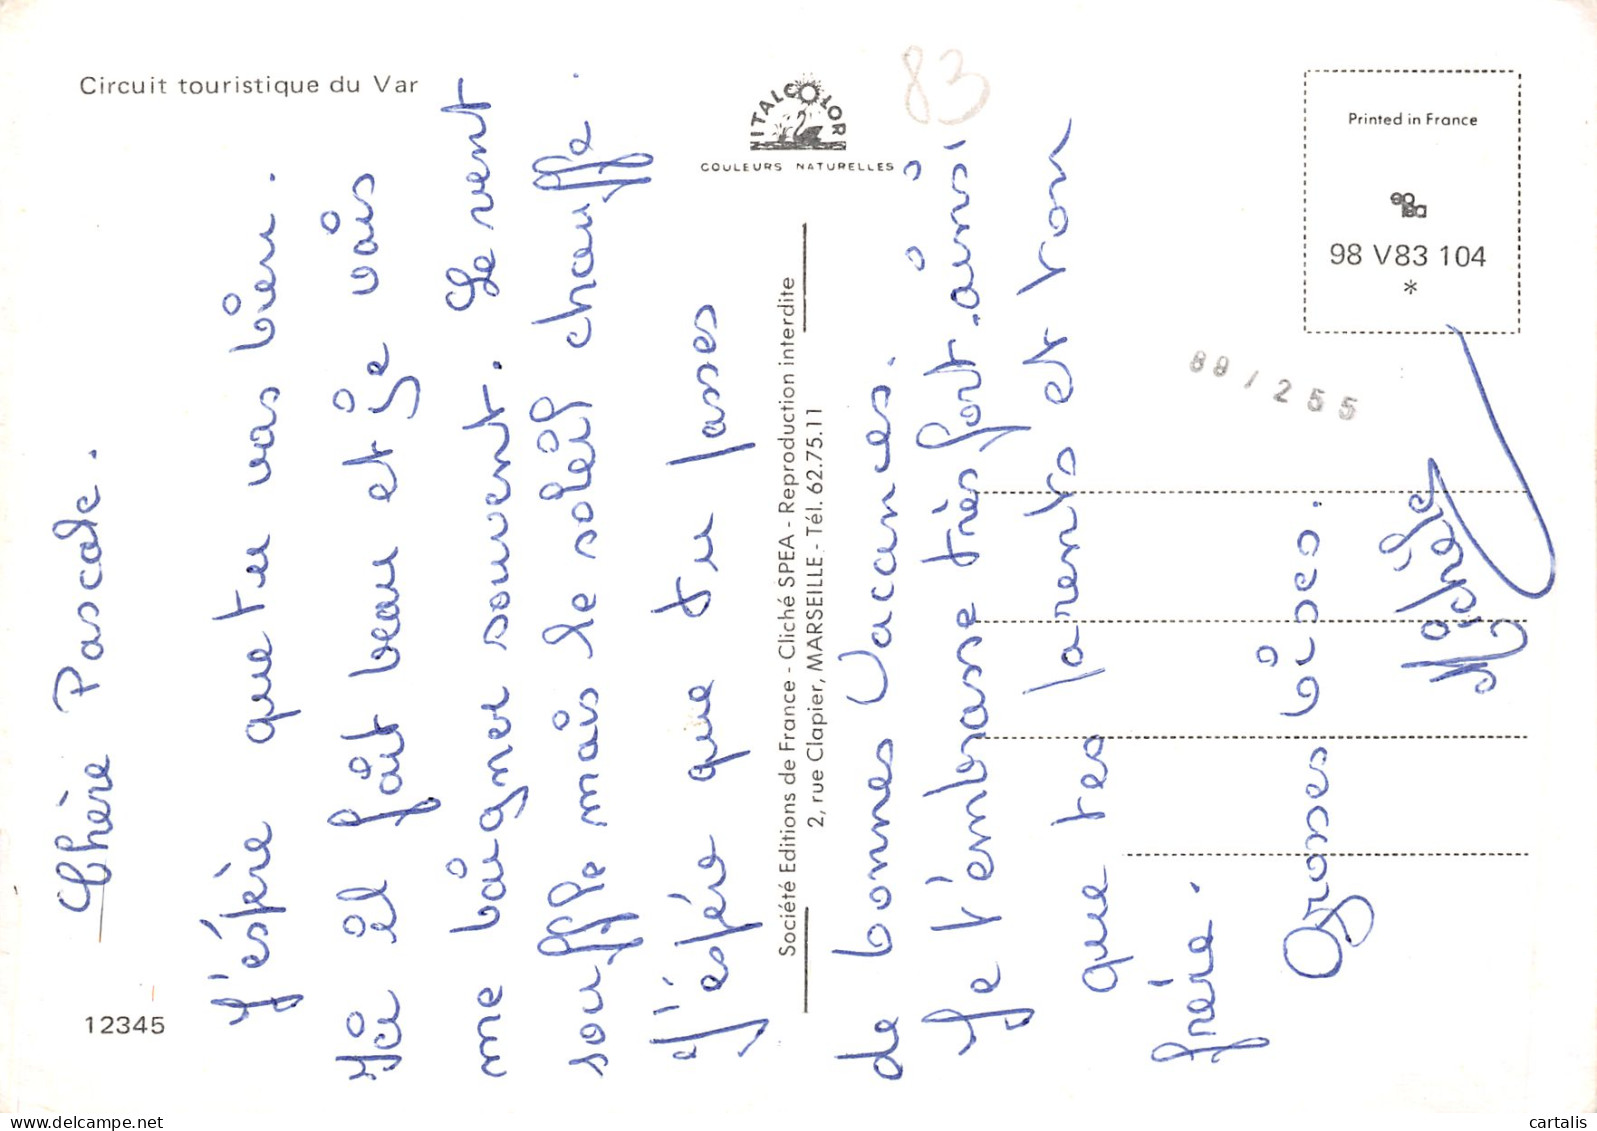 Circuit touristique du Var
ITALCOLOR
COULEURS NATURELLES
83
Printed in France
98 V83 104
*
88/255
Société Editions de France - Cliché SPEA - Reproduction interdite
2, rue Clapier, MARSEILLE - Tél. 62.75.11
12345
Chère Pascale.
J'éspère que tu vas bien.
Ici il fait beau et je vais
me baigner souvent. Le vent
souffle mais le soleil chauffe.
J'espére que tu passes
de bonnes Vacances.
Je t'embrasse très fort ainsi
que tes parents et ton
frère.
Grosses bises.
Michèle
delcampe.net
cartalis